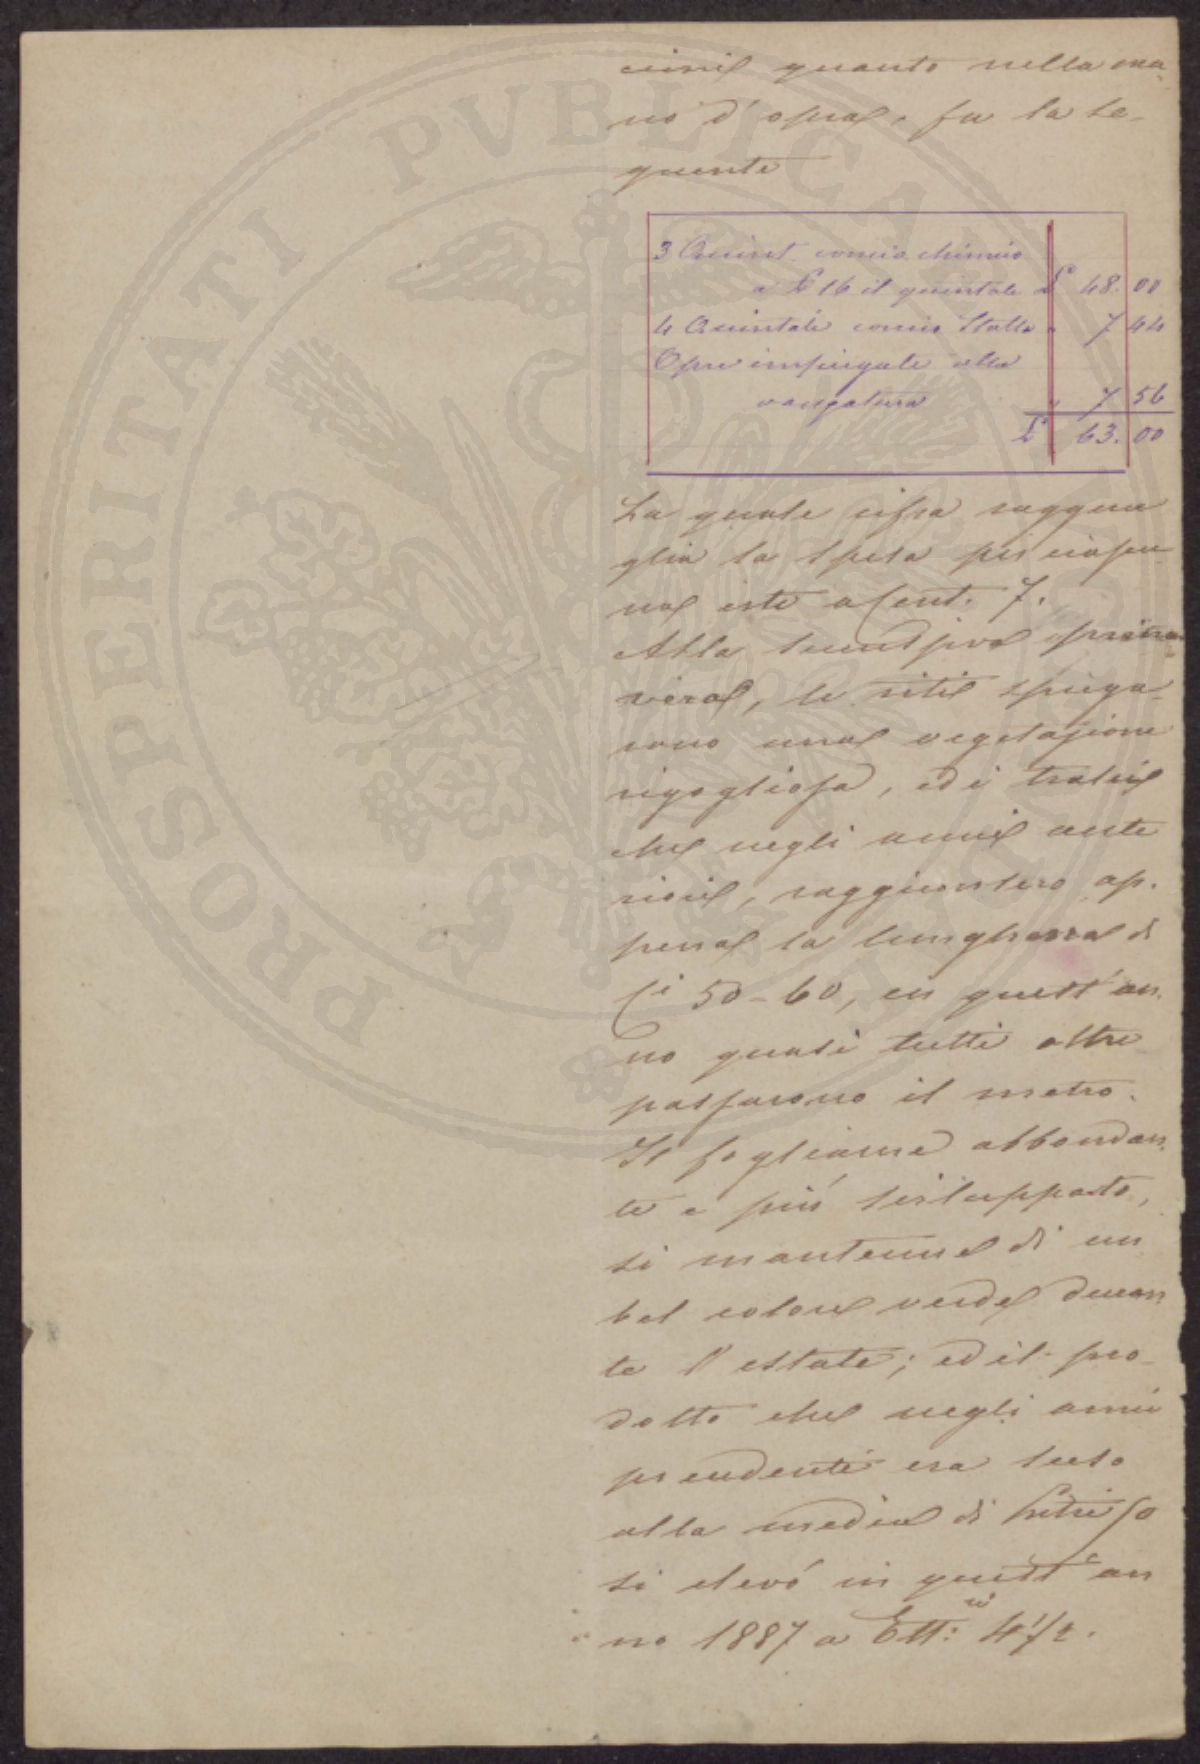 cimi quanto nella ma-
no d'opra, fu la se-
guente
3 Quint. concio chimico
a £ 16 il quintale £ 48.00
4 Quintali concio Stalla " 7 44
Opre impiegate alla
vangatura " 7 56
£ 63.00
La quale cifra raggua
glia la spesa per ciascu
na vite a Cent. 7.
Alla successiva prima-
vera, le viti spiega-
rono una vegetazione
rigogliosa, ed i tralci
che negli anni ante
riori, raggiunsero ap-
pena la lunghezza di
Ci 50-60, in quest'an-
no quasi tutti oltre
passarono il metro.
Il fogliame abbondan-
te e più sviluppato,
si mantenne di un
bel colore verde duran
te l'estate; ed il pro-
dotto che negli anni
precedenti era sceso
alla media di Litri 50
si elevó in quest'an
no 1887 a Ett:ri 4 1/2.
PROSPERITATI PVBLICAE